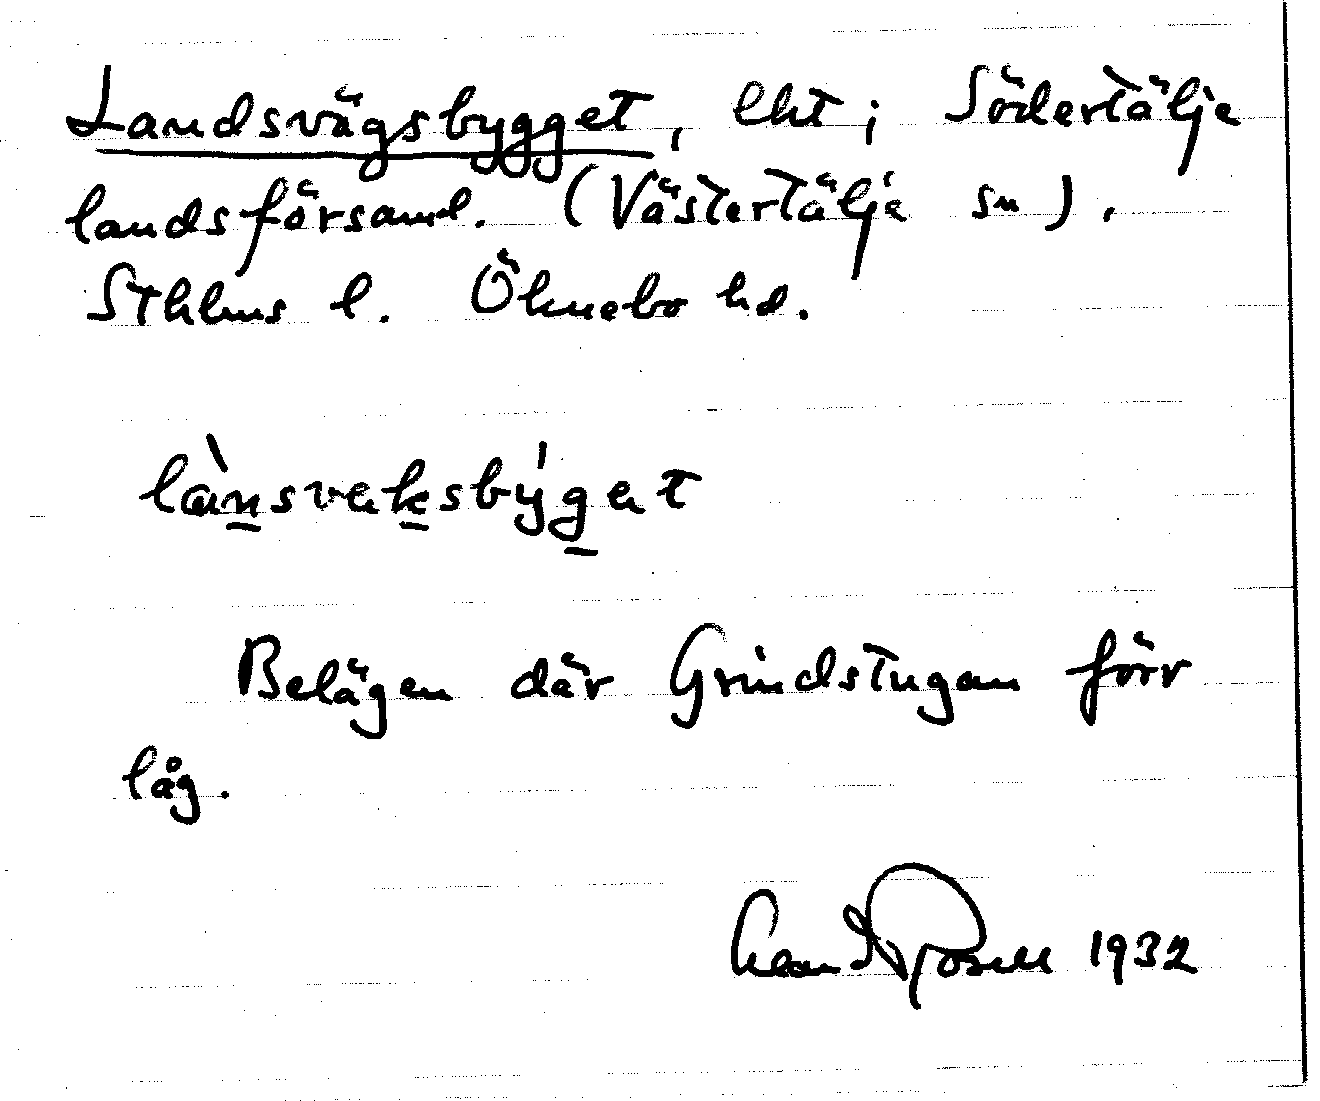 Landsvägsbygget, lht i Södertälje
landsförsaml. (Västertälje sn).
Sthlms l. Öknebo hd.
lànsvɛksbýgɛt
Belägen där Grindstugan förr
låg.
1932